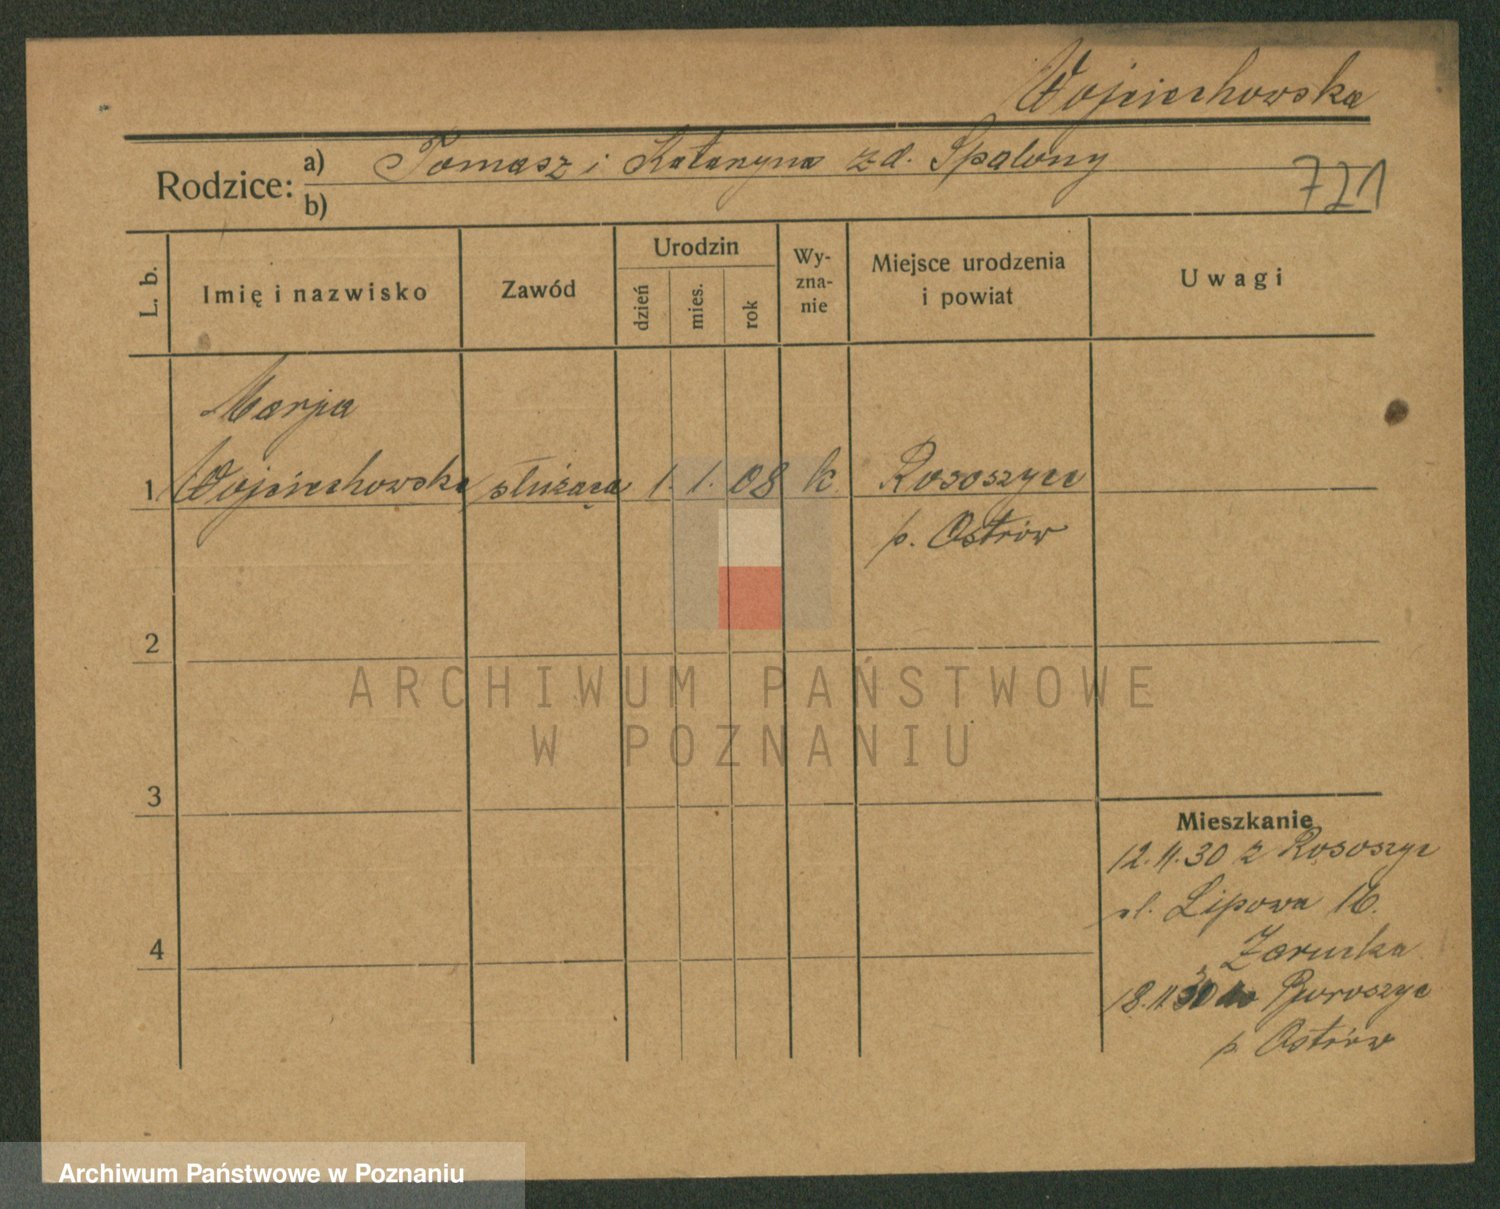 Wojciechowska
Rodzice: a) Tomasz i Katarzyna zd. Spaleny
b)
721
L. b.
Imię i nazwisko
Zawód
Urodzin
dzień
mies.
rok
Wy-
zna-
nie
Miejsce urodzenia
i powiat
Uwagi
Marja
1 Wojciechowska służąca 1. 1. 08 k. Rososzyce
p. Ostrów
2
ARCHIWUM PAŃSTWOWE
W POZNANIU
3
Mieszkanie
12.11.30 z Rososzyc
ul. Lipowa 16.
4
18.11.30 do
p. Ostrów
Archiwum Państwowe w Poznaniu